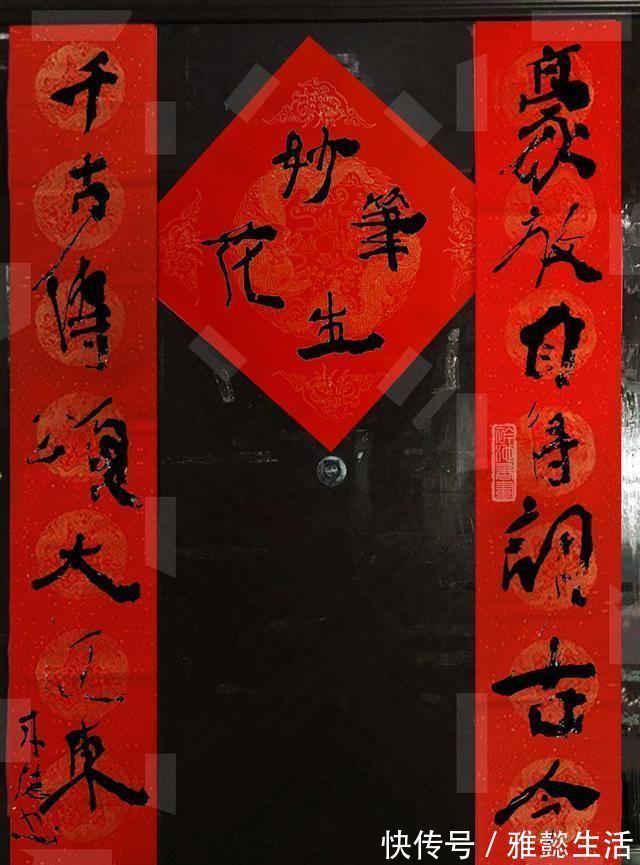 豪放自得調古今
妙筆生花
千古傳頌大江東
快传号 / 雅懿生活